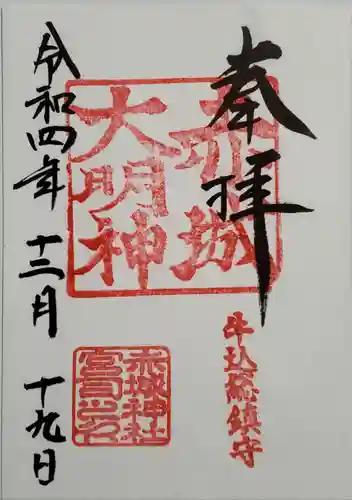 奉拝
赤城
大明神
牛込総鎮守
赤城神社
宮司之印
令和四年 十二月 十九日